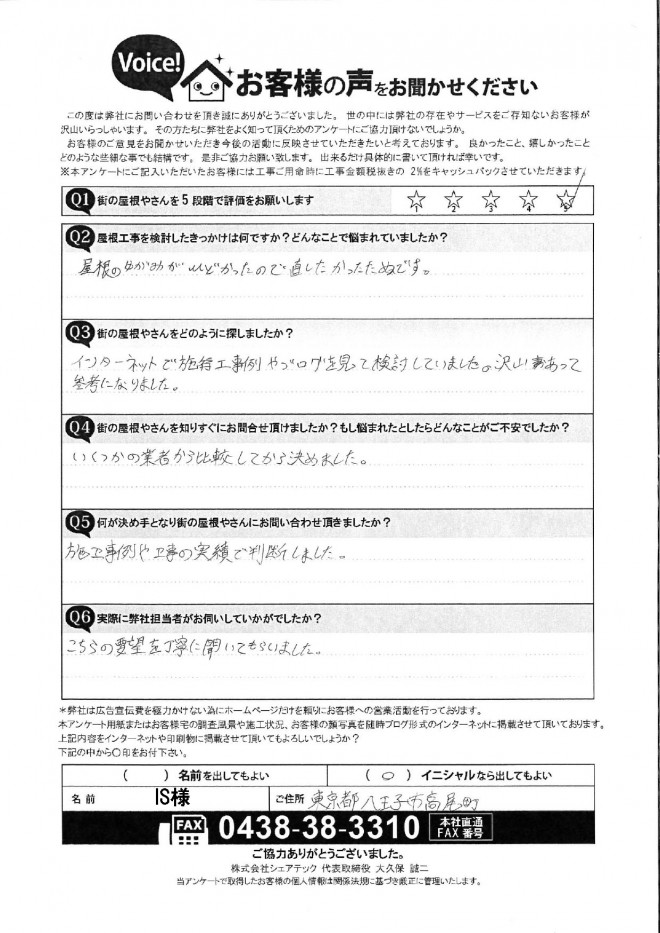 Voice!
お客様の声をお聞かせください
この度は弊社にお問い合わせを頂き誠にありがとうございました。 世の中には弊社の存在やサービスをご存知ないお客様が
沢山いらっしゃいます。 その方たちに弊社をよく知って頂くためのアンケートにご協力頂けないでしょうか。
お客様のご意見をお聞かせいただき今後の活動に反映させていただきたいと考えております。 良かったこと、嬉しかったこと
どのような些細な事でも結構です。 是非ご協力お願い致します。 出来るだけ具体的に書いて頂ければ幸いです。
※本アンケートにご記入いただいたお客様には工事ご用命時に工事金額税抜きの 2%をキャッシュバックさせていただきます。
Q1 街の屋根やさんを5段階で評価をお願いします
1 2 3 4 5
Q2 屋根工事を検討したきっかけは何ですか?どんなことで悩まれていましたか?
屋根のゆがみがひどかったので直したかったためです。
Q3 街の屋根やさんをどのように探しましたか?
インターネットで施工事例やブログを見て検討していました。沢山あって
参考になりました。
Q4 街の屋根やさんを知りすぐにお問合せ頂けましたか?もし悩まれたとしたらどんなことがご不安でしたか?
いくつかの業者から比較してから決めました。
Q5 何が決め手となり街の屋根やさんにお問い合わせ頂きましたか?
施工事例や工事の実績で判断しました。
Q6 実際に弊社担当者がお伺いしていかがでしたか?
こちらの要望を丁寧に聞いてもらいました。
*弊社は広告宣伝費を極力かけない為にホームページだけを頼りにお客様への営業活動を行っております。
本アンケート用紙またはお客様宅の調査風景や施工状況、お客様の顔写真を随時ブログ形式のインターネットに掲載させて頂いております。
上記内容をインターネットや印刷物に掲載させて頂いてもよろしいでしょうか?
下記の中から〇印をお付下さい。
( ) 名前を出してもよい ( 〇 ) イニシャルなら出してもよい
名前 IS様 ご住所 東京都八王子市高尾町
FAX 0438-38-3310 本社直通 FAX番号
ご協力ありがとうございました。
株式会社シェアテック 代表取締役 大久保 誠二
当アンケートで取得したお客様の個人情報は関係法規に基づき厳正に管理いたします。